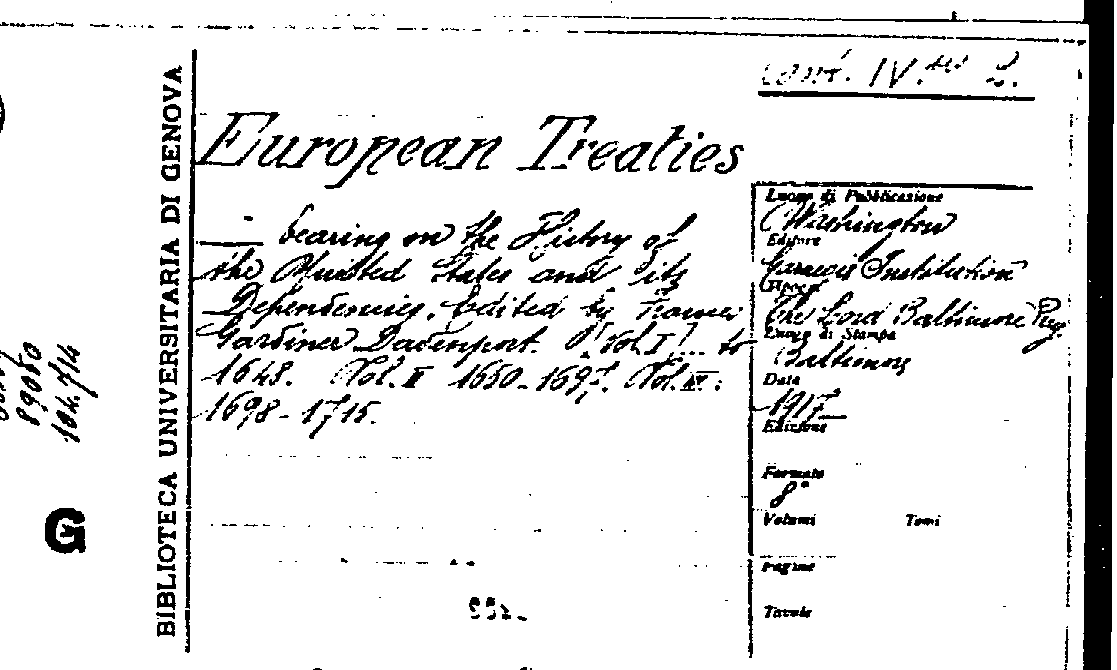 cont. IV.
European Treaties
— bearing on the History of
the United States and its
Dependencies. Edited by Frances
Gardiner Davenport. [Vol. I] ... to
1648. Vol. II 1650-1697. Vol. III:
1698-1715.
Luogo di Pubblicazione
Washington
Editore
Carnegie Institution
Stamp.
The Lord Baltimore Press
Luogo di Stampa
Baltimore
Data
1917
Edizione
Formato
8°
Volumi Tomi
Pagine
Tavole
BIBLIOTECA UNIVERSITARIA DI GENOVA
89060
104.714
G